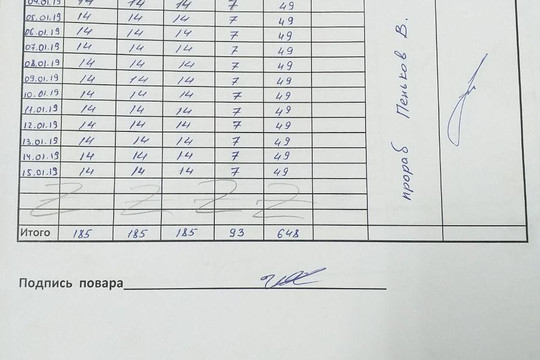 04.01.19 14 14 14 7 49
05.01.19 14 14 14 7 49
06.01.19 14 14 14 7 49
07.01.19 14 14 14 7 49
08.01.19 14 14 14 7 49
09.01.19 14 14 14 7 49
10.01.19 14 14 14 7 49
11.01.19 14 14 14 7 49
12.01.19 14 14 14 7 49
13.01.19 14 14 14 7 49
14.01.19 14 14 14 7 49
15.01.19 14 14 14 7 49
Z Z Z Z
Итого 185 185 185 93 648
прораб Пеньков В.
Подпись повара